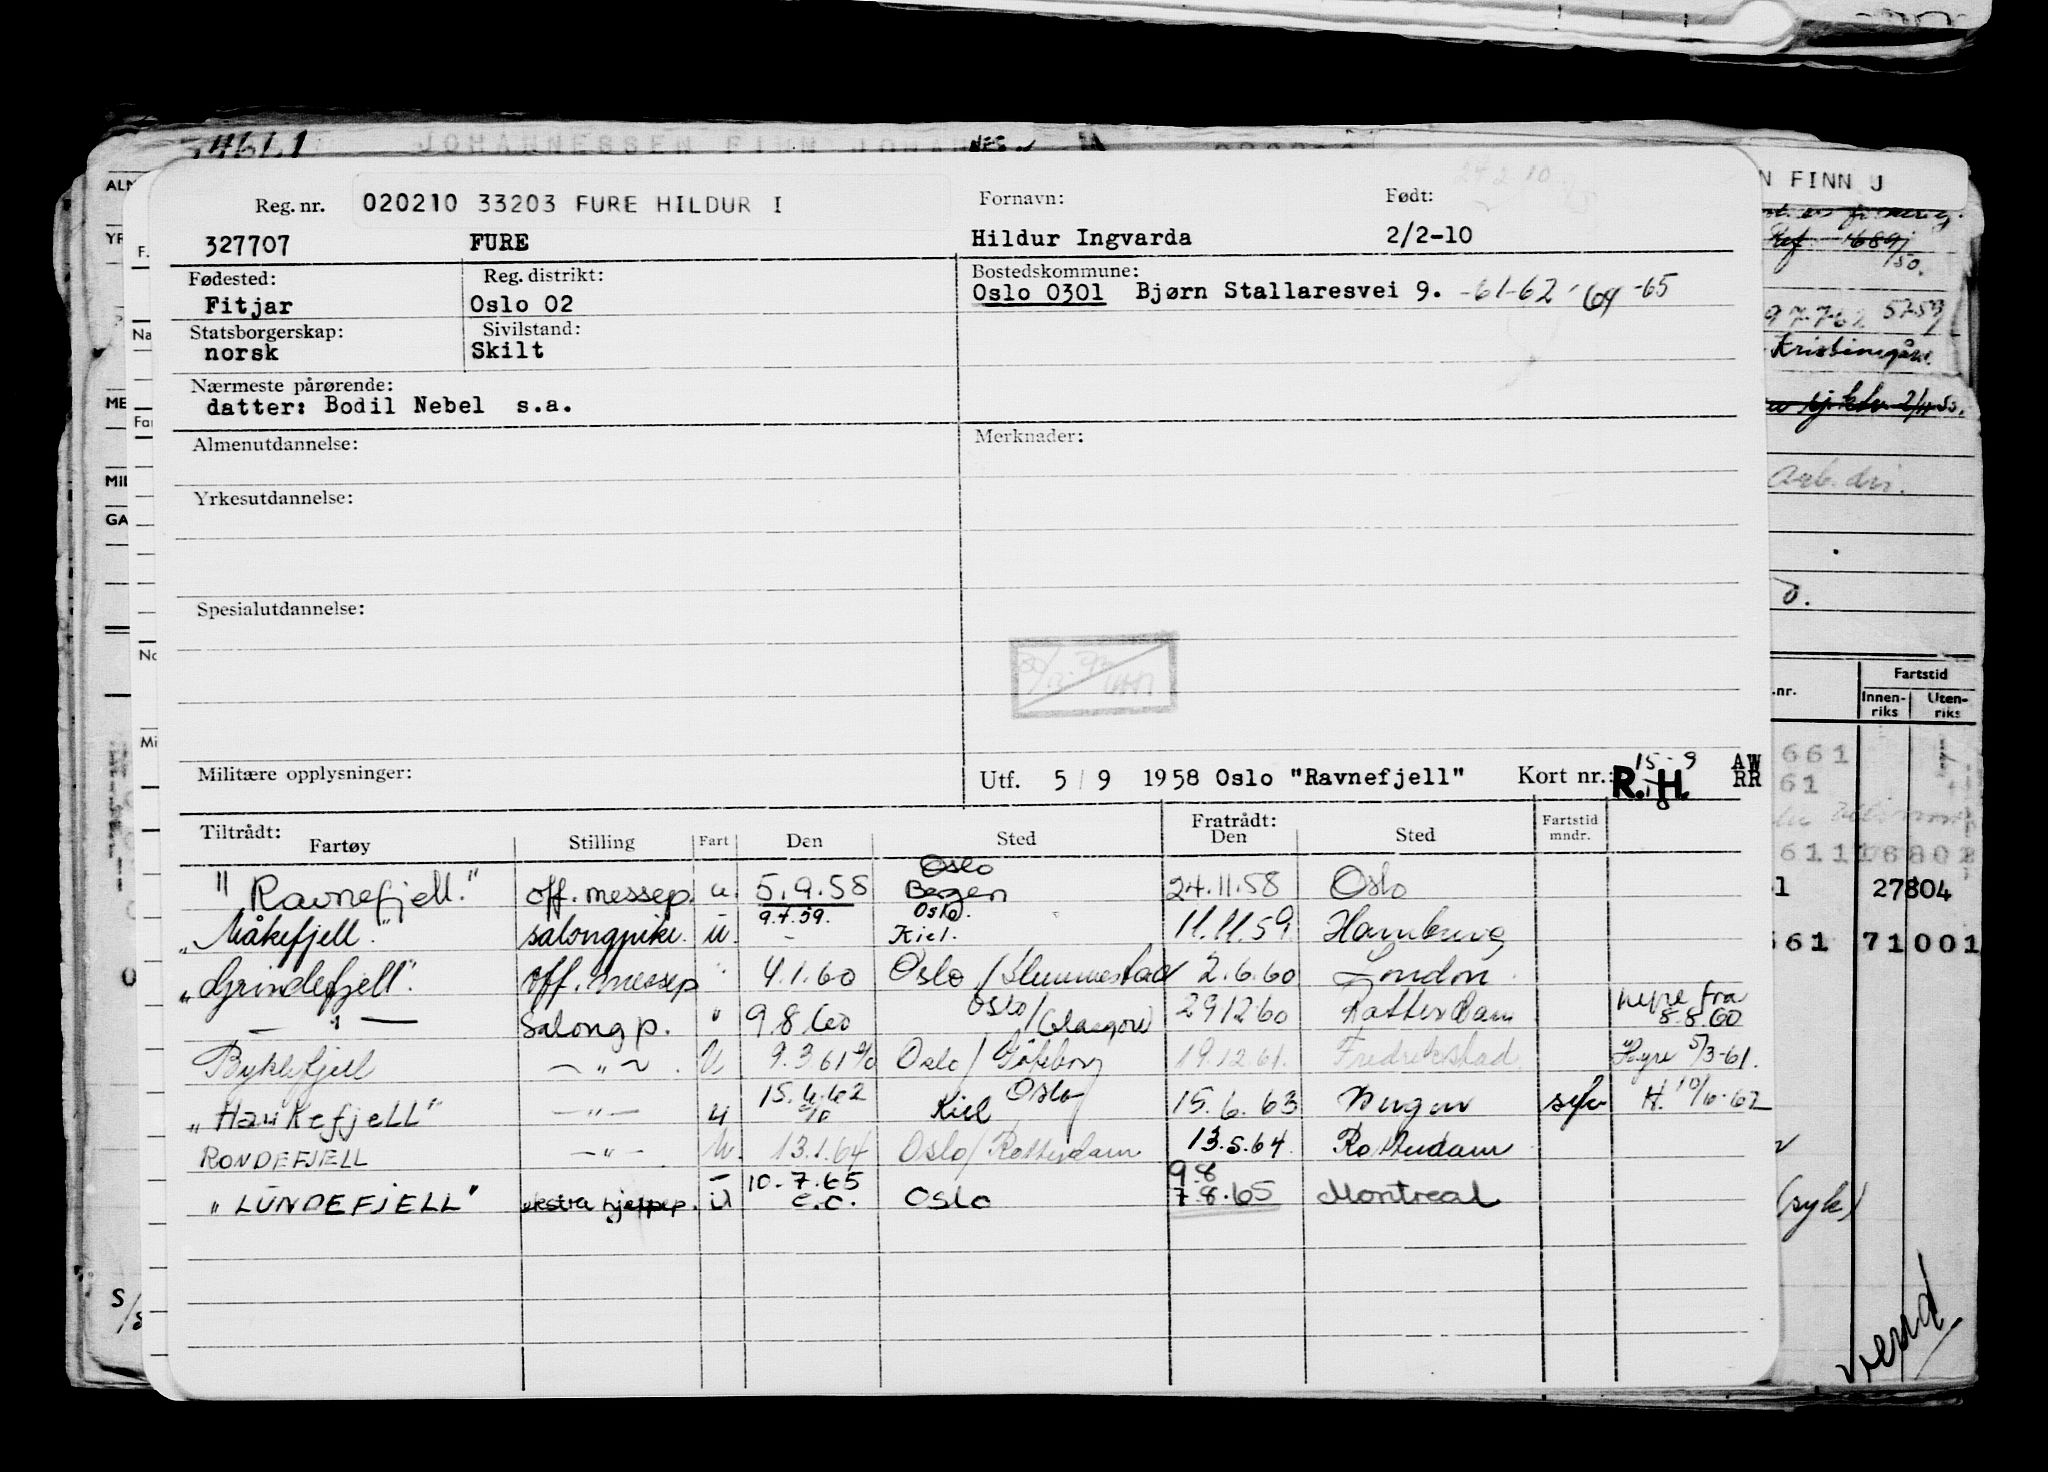 4661 JOHANNESSEN FINN JOHANNES
N FINN J
Reg. nr. 020210 33203 FURE HILDUR I Fornavn: Født:
327707 FURE Hildur Ingvarda 2/2-10
Fødested: Reg. distrikt: Bostedskommune:
Fitjar Oslo 02 Oslo 0301 Bjørn Stallaresvei 9. -61-62-64-65
Statsborgerskap: Sivilstand:
norsk Skilt
Nærmeste pårørende:
datter: Bodil Nebel s.a.
Almenutdannelse: Merknader:
Yrkesutdannelse:
Spesialutdannelse:
Militære opplysninger: Utf. 5/9 1958 Oslo "Ravnefjell" Kort nr.: R.H. 15-9 AW RR
Tiltrådt: Fratrådt:
Fartøy Stilling Fart Den Sted Den Sted Fartstid mndr.
"Ravnefjell." off. messep. u. 5.9.58 Oslo Bergen 24.11.58 Oslo
"Måkefjell." salongpike. u. 9.7.59. Oslo. Kiel. 11.11.59. Hamburg
"Grindefjell". off. messep " 4.1.60 Oslo/Slemmestad 2.6.60 London
— " — Salong p. " 9.8.60 Oslo/Glasgow 29.12.60 Rotterdam hyre fra 8.8.60
Byklefjell — " — U 9.3.61 Oslo/Göteborg 19.12.61. Fredrikstad Hyre 5/3-61.
"Haukefjell" — " — u 15.6.62 Kiel Oslo 15.6.63 Bergen H. 10/6-62
RONDEFJELL — " — U. 13.1.64 Oslo/Rotterdam 13.5.64 Rotterdam
"LUNDEFJELL" ekstra hjelpep. u 10.7.65 e.o. Oslo 9.8 7.8.65 Montreal
Kristinegård.
arb. dri.
.nr. Fartstid
Innen-riks Uten-riks
661
61
27804
661 71001
(syk)
vend